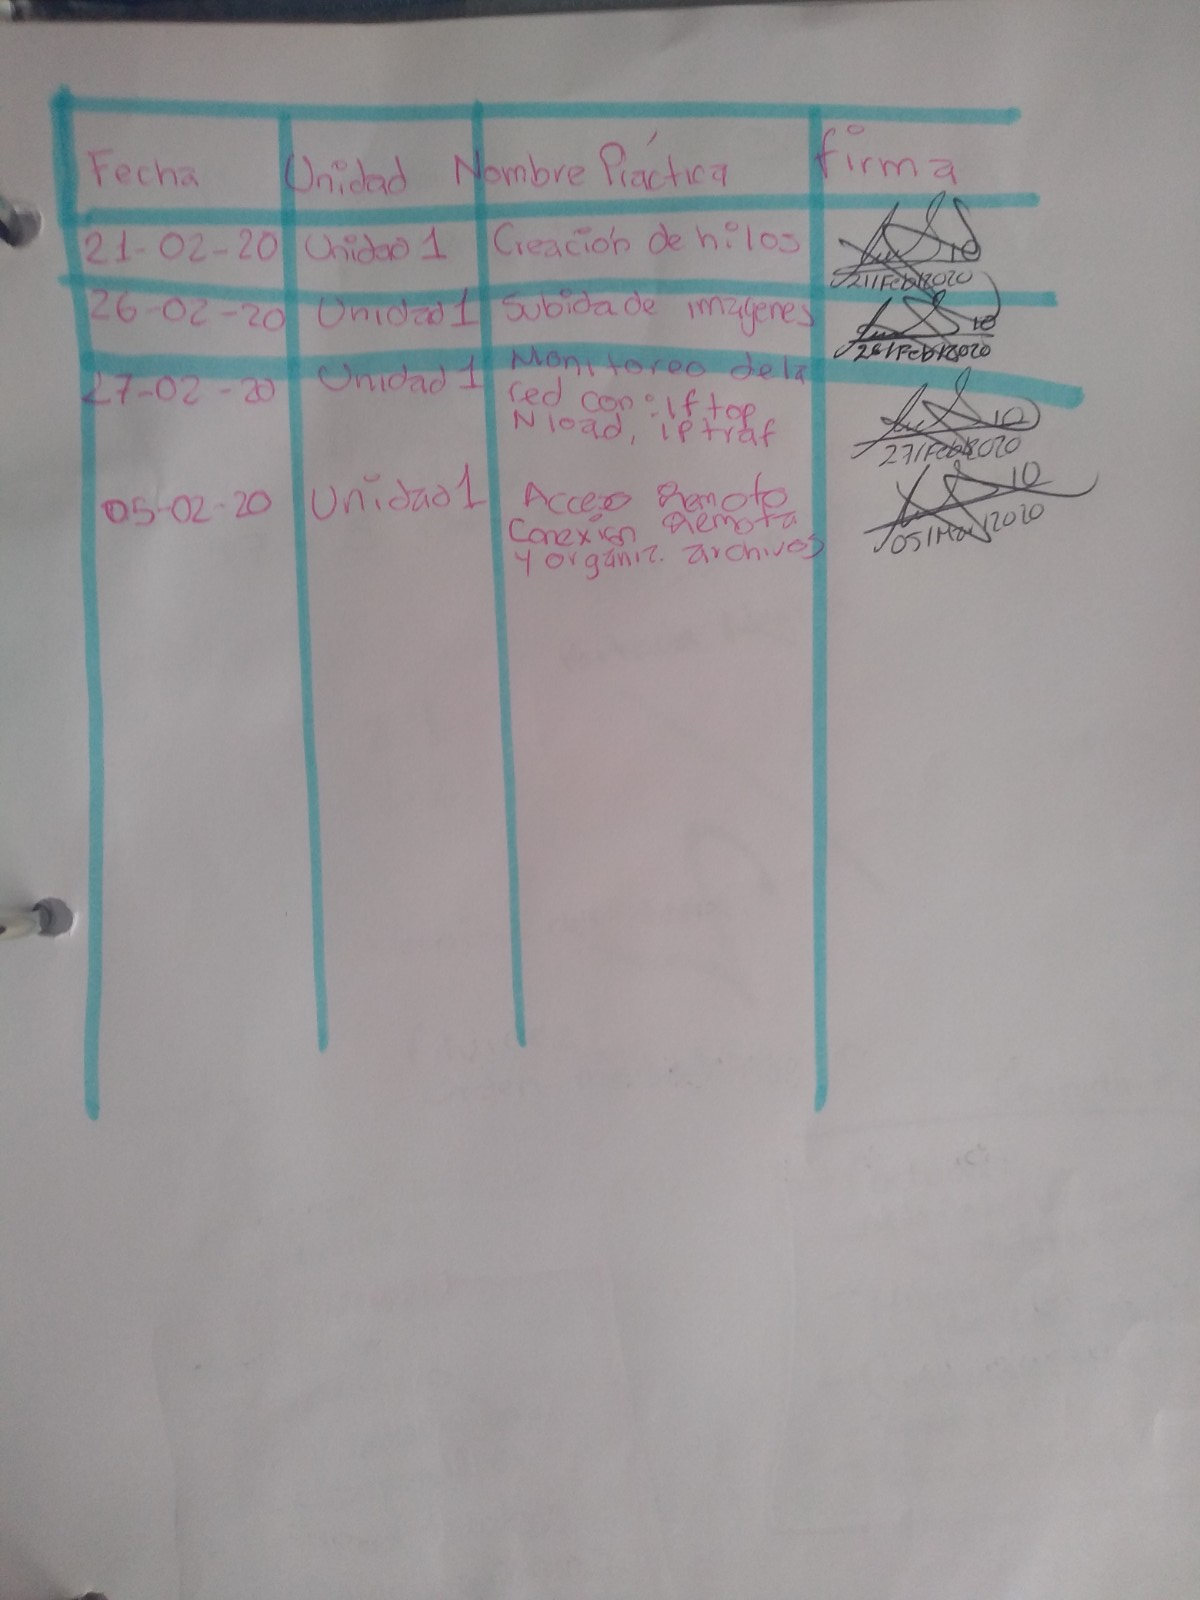 Fecha Unidad Nombre Práctica firma
21-02-20 Unidad 1 Creación de hilos 10
21/Feb/2020
26-02-20 Unidad 1 Subida de imágenes 10
26/Feb/2020
27-02-20 Unidad 1 Monitoreo de la
red con: Iftop 10
Nload, iptraf 27/Feb/2020
05-02-20 Unidad 1 Acceso Remoto 10
Conexión Remota 05/Mar/2020
y organiz. archivos